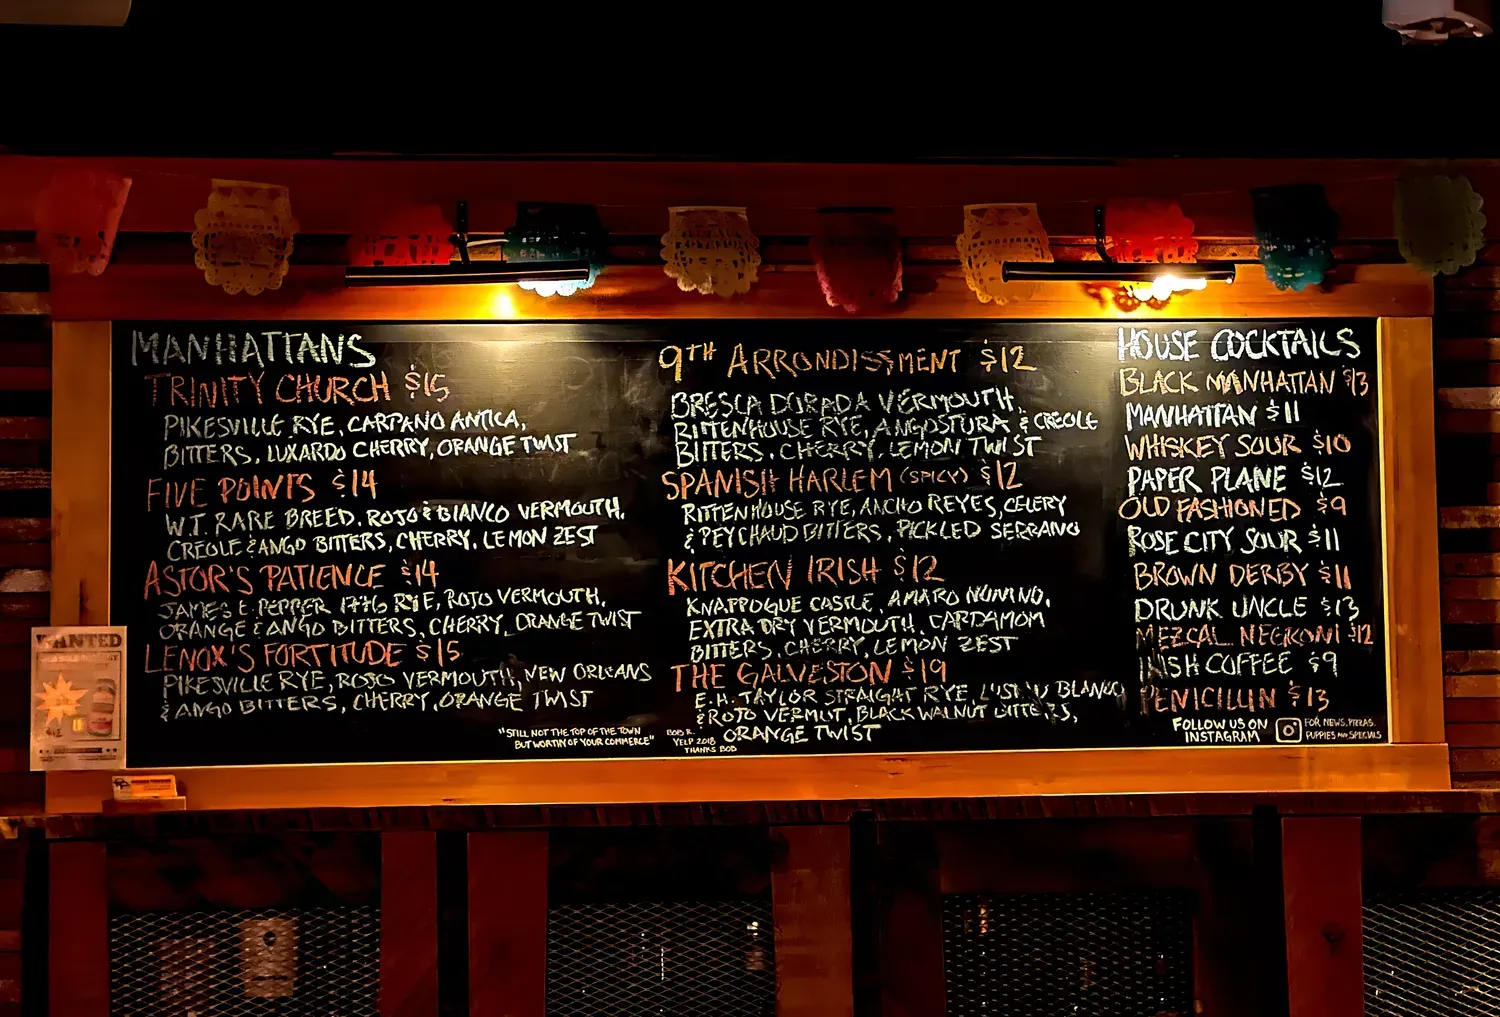 MANHATTANS
TRINITY CHURCH $15
PIKESVILLE RYE, CARPANO ANTICA,
BITTERS, LUXARDO CHERRY, ORANGE TWIST
FIVE POINTS $14
W.T. RARE BREED, ROJO & BIANCO VERMOUTH,
CREOLE & ANGO BITTERS, CHERRY, LEMON ZEST
ASTOR'S PATIENCE $14
JAMES E. PEPPER 1776 RYE, ROJO VERMOUTH,
ORANGE & ANGO BITTERS, CHERRY, ORANGE TWIST
LENOX'S FORTITUDE $15
PIKESVILLE RYE, ROSSO VERMOUTH, NEW ORLEANS
& ANGO BITTERS, CHERRY, ORANGE TWIST
"STILL NOT THE TOP OF THE TOWN
BUT WORTHY OF YOUR COMMERCE"
BOB R.
YELP 2018
THANKS BOB
9TH ARRONDISSMENT $12
BRESCA DORADA VERMOUTH,
RITTENHOUSE RYE, ANGOSTURA & CREOLE
BITTERS, CHERRY, LEMON TWIST
SPANISH HARLEM (SPICY) $12
RITTENHOUSE RYE, ANCHO REYES, CELERY
& PEYCHAUD BITTERS, PICKLED SERRANO
KITCHEN IRISH $12
KNAPPOGUE CASTLE, AMARO NONINO,
EXTRA DRY VERMOUTH, CARDAMOM
BITTERS, CHERRY, LEMON ZEST
THE GALVESTON $19
E.H. TAYLOR STRAIGHT RYE, BLANCO
& ROJO VERMUT, BLACK WALNUT BITTERS,
ORANGE TWIST
HOUSE COCKTAILS
BLACK MANHATTAN $13
MANHATTAN $11
WHISKEY SOUR $10
PAPER PLANE $12
OLD FASHIONED $9
ROSE CITY SOUR $11
BROWN DERBY $11
DRUNK UNCLE $13
MEZCAL NEGRONI $12
IRISH COFFEE $9
PENICILLIN $13
FOLLOW US ON
INSTAGRAM
FOR NEWS, PIZZAS,
PUPPIES AND SPECIALS
WANTED